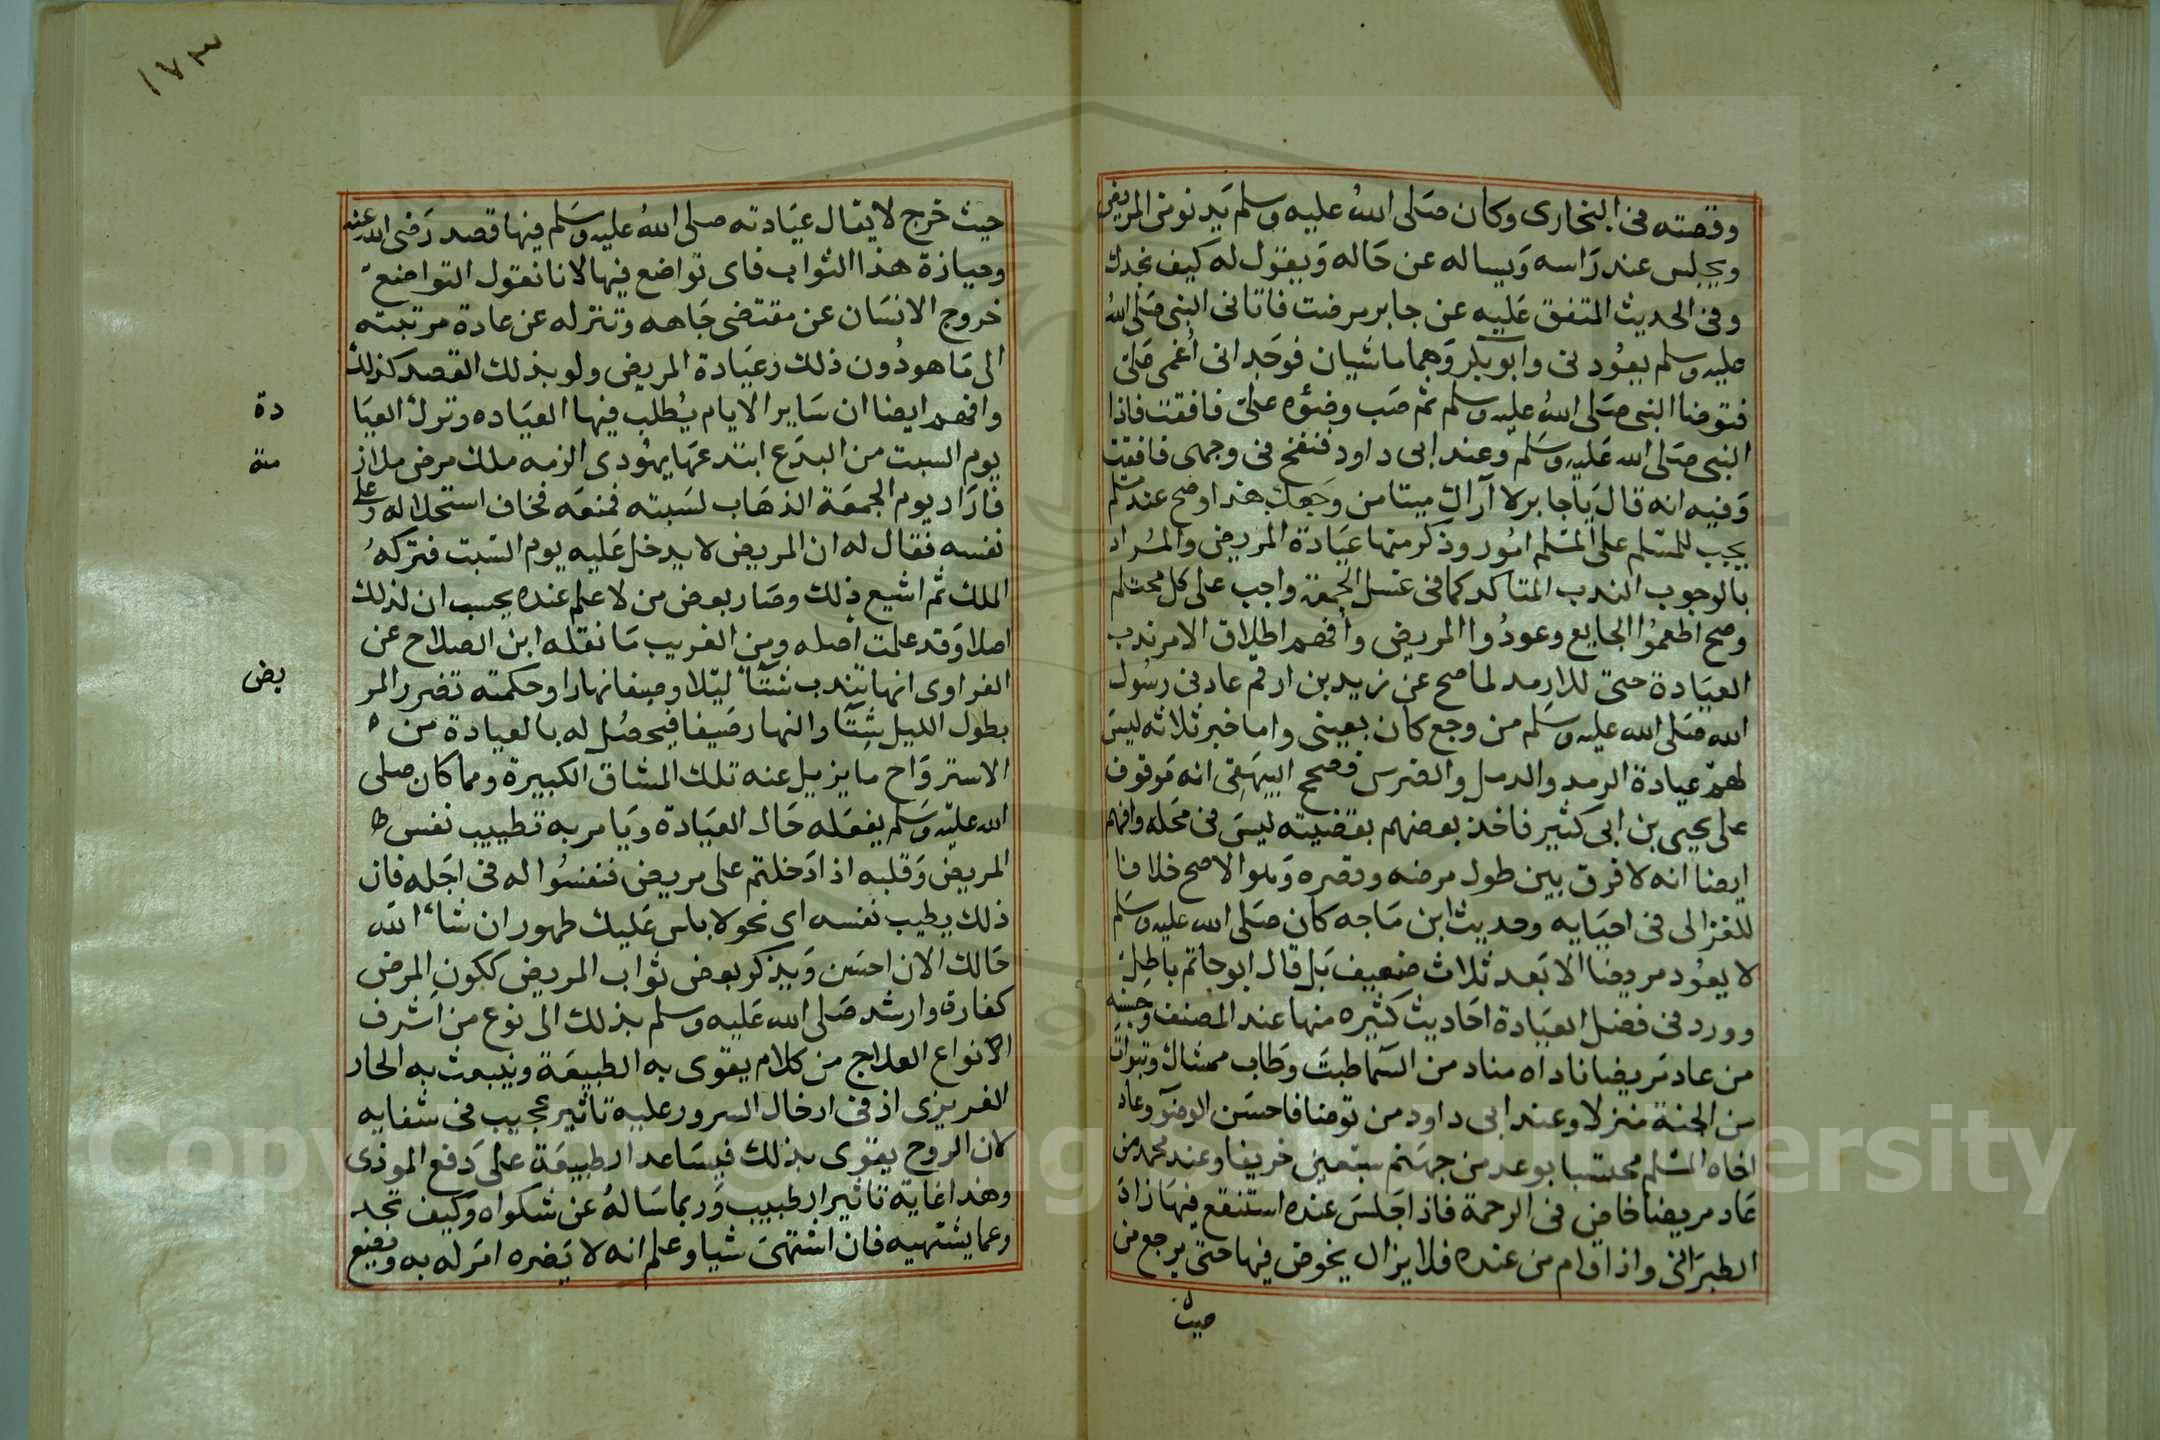 وقصته في البخاري وكان صَلى اللهُ عليه وسلم يَدنو من المريض
ويجلس عند رَاسه وَيساله عن حَاله وَيقول له كيف تجدك
وفي الحديث المتفق عَليه عن جابر مرضت فاتاني النبي صَلى اللهُ
عليه وسلم يعُودني وابوبكر وَهما ماشيان فوجَداني اُغمي عَلي
فتوضا النبي صَلى اللهُ عليه وسلم ثم صَب وضئوه عَليّ فافقت فاذا
النبي صَلى الله عَليه وسَلم وعند ابي داود فنفخ في وجهي فافقت
وَفيه انه قالَ يَا جابر لا آراك ميتا من وَجعك هذا وصح عند مسلم
يجب للمسْلم على المسْلم امُور وذكر منها عيَادة المريض والمُراد
بالوجوب الندب المتاكد كما في غسل الجمعَة واجب على كل محتلم
وصح اطعمُوا الجايع وعودُوا المريض وافهم اطلاق الامر ندب
العيَادة حتى للارمد لما صح عن زيد بن ارقم عادني رسُول
الله صَلى الله عليه وسَلم من وجع كان بعيني واما خبر ثلاثه ليسَ
لهم عيادة الرمد والدمل والضرس فصحح البيهَقِي انه مَوقوف
على يحيى بن ابي كثير فاخذ بعضهم بقضيته ليسَ في محَله وافهم
ايضا انه لا فرق بين طول مرضه وقصره وَهو الاصح خلافا
للغزالي في احيَايه وحديث ابن مَاجه كان صَلى الله عليه وسَلم
لا يعُود مريضا الا بَعد ثلاث ضعيف بَل قال ابو حاتم باطِل
وورد في فضل العيَادة احَاديث كثيره منها عند المصنف وحسنه
من عاد مَريضا ناداه مناد من السَما طبتَ وطاب ممشاك وتبوات
من الجنة منزلا وعند ابي داود من توضا فاحسَن الوضوَ وعاد
اخاه المسْلم محتسبا بوعد من جهَنم سبعين خريفا وعند محمد من
عَاد مريضا خاض في الرحمة فاذا جَلسَ عنده استنقع فيهَا زادَ
الطبَراني واذا قام من عنده فلا يزال يخوض فيها حتى يرجع من
حيث
١٧٣
حيث خرج لا يقال عيَادته صلى اللهُ عليه وسَلم فيها قصد رَضي الله عنه
وحيازة هذا الثواب فاي تواضع فيها لانا نقول التواضع
خروج الانسَان عن مقتضى جَاهه وتنزله عن عادة مرتبته
الى مَا هو دُون ذلك وعيَادة المريض ولو بذلك القصد كذلك
وافهم ايضا ان سَاير الايام يُطلب فيها العيَاده وترك العيَا
دة
يوم السبت من البدَع ابتدعهَا يهُودي الزمه ملك مرض ملاز
مته
فارَاد يوم الجمعَة الذهَاب لسَبته فمنعَه فخاف استحلاله وعلى
نفسه فقال له ان المريض لا يدخل عَليه يوم السَبت فترَكهُ
الملك ثم اشيع ذلك وصَار بعض من لا علم عنده يحسب ان لذلك
اصلا وَقد علمت اصله ومن الغريب مَا نقله ابن الصلاح عن
الفراوي انها تندب شتَآءً ليْلا وصيفا نهارا وحكمته تضرر المر
يض
بطول الليل شِتَآ والنهار صَيفا فيحصُل له بالعيادة من
الاسترَواح ما يزيل عنه تلك المشاق الكبيرة ومما كان صلى
الله عليْه وسَلم يفعَله حَال العيَادة وَيَامر به تطييب نفس
المريض وَقلبه اذا دَخلتم على مريض فنفسُوا له في اجَله فان
ذلك يطيب نفسه اي نحو لا باس عَليك طهور ان شاءَ الله
حَالك الان احسَن وَيذكر بعض ثواب المريض ككون المرض
كفارة وارشد صَلى الله عَليه وسلم بذلك الى نوع من اَشرف
الانواع العلاج من كلام يقوى به الطبيعَة وينبعث به الحار
الغريزي اذ في ادخال السرور عليه تاثير عجيب في شفايه
لان الروح يقوى بذلك فيسَاعد الطبيعَة على دَفع الموذي
وهذا غاية تاثير الطبيب وَربما سَالهُ عن شكواه وكيف تجد
وعما يشتهيه فان اشتهىَ شيا وعلم انه لا يَضره امَر له به ويضع